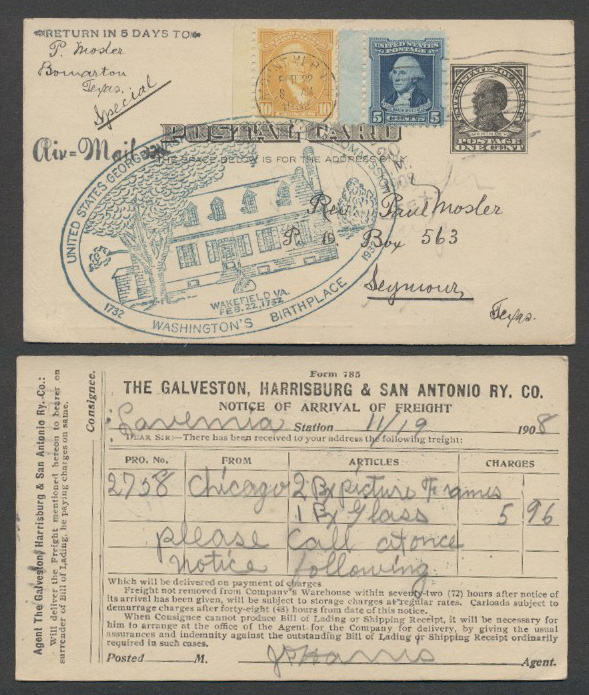 RETURN IN 5 DAYS TO
P. Mosler
Bomarton
Texas.
Special
Air=Mail
10
UNITED STATES POSTAGE
5 5
POSTAGE
ONE CENT
POSTAL CARD
THE SPACE BELOW IS FOR THE ADDRESS
UNITED STATES GEORGE
WAKEFIELD VA.
FEB. 22, 1732
1732 WASHINGTON'S BIRTHPLACE
Rev. Paul Mosler
P. O. Box 563
Seymour,
Texas.
Form 785
THE GALVESTON, HARRISBURG & SAN ANTONIO RY. CO.
NOTICE OF ARRIVAL OF FREIGHT
Lavernia Station 11/19 1908
DEAR SIR:—There has been received to your address the following freight:
PRO. No. FROM ARTICLES CHARGES
2758 Chicago 2 Bx picture Frames
1 Bx Glass 5 96
please Call at once
Notice following
Which will be delivered on payment of charges
Freight not removed from Company's Warehouse within seventy-two (72) hours after notice of
its arrival has been given, will be subject to storage charges at regular rates. Carloads subject to
demurrage charges after forty-eight (48) hours from date of this notice.
When Consignee cannot produce Bill of Lading or Shipping Receipt, it will be necessary for
him to arrange at the office of the Agent for the Company for delivery, by giving the usual
assurances and indemnity against the outstanding Bill of Lading or Shipping Receipt ordinarily
required in such cases.
Posted M. Harris Agent.
Agent The Galveston, Harrisburg & San Antonio Ry. Co.:
Will deliver the Freight mentioned hereon to bearer on
surrender of Bill of Lading, he paying charges on same.
Consignee.